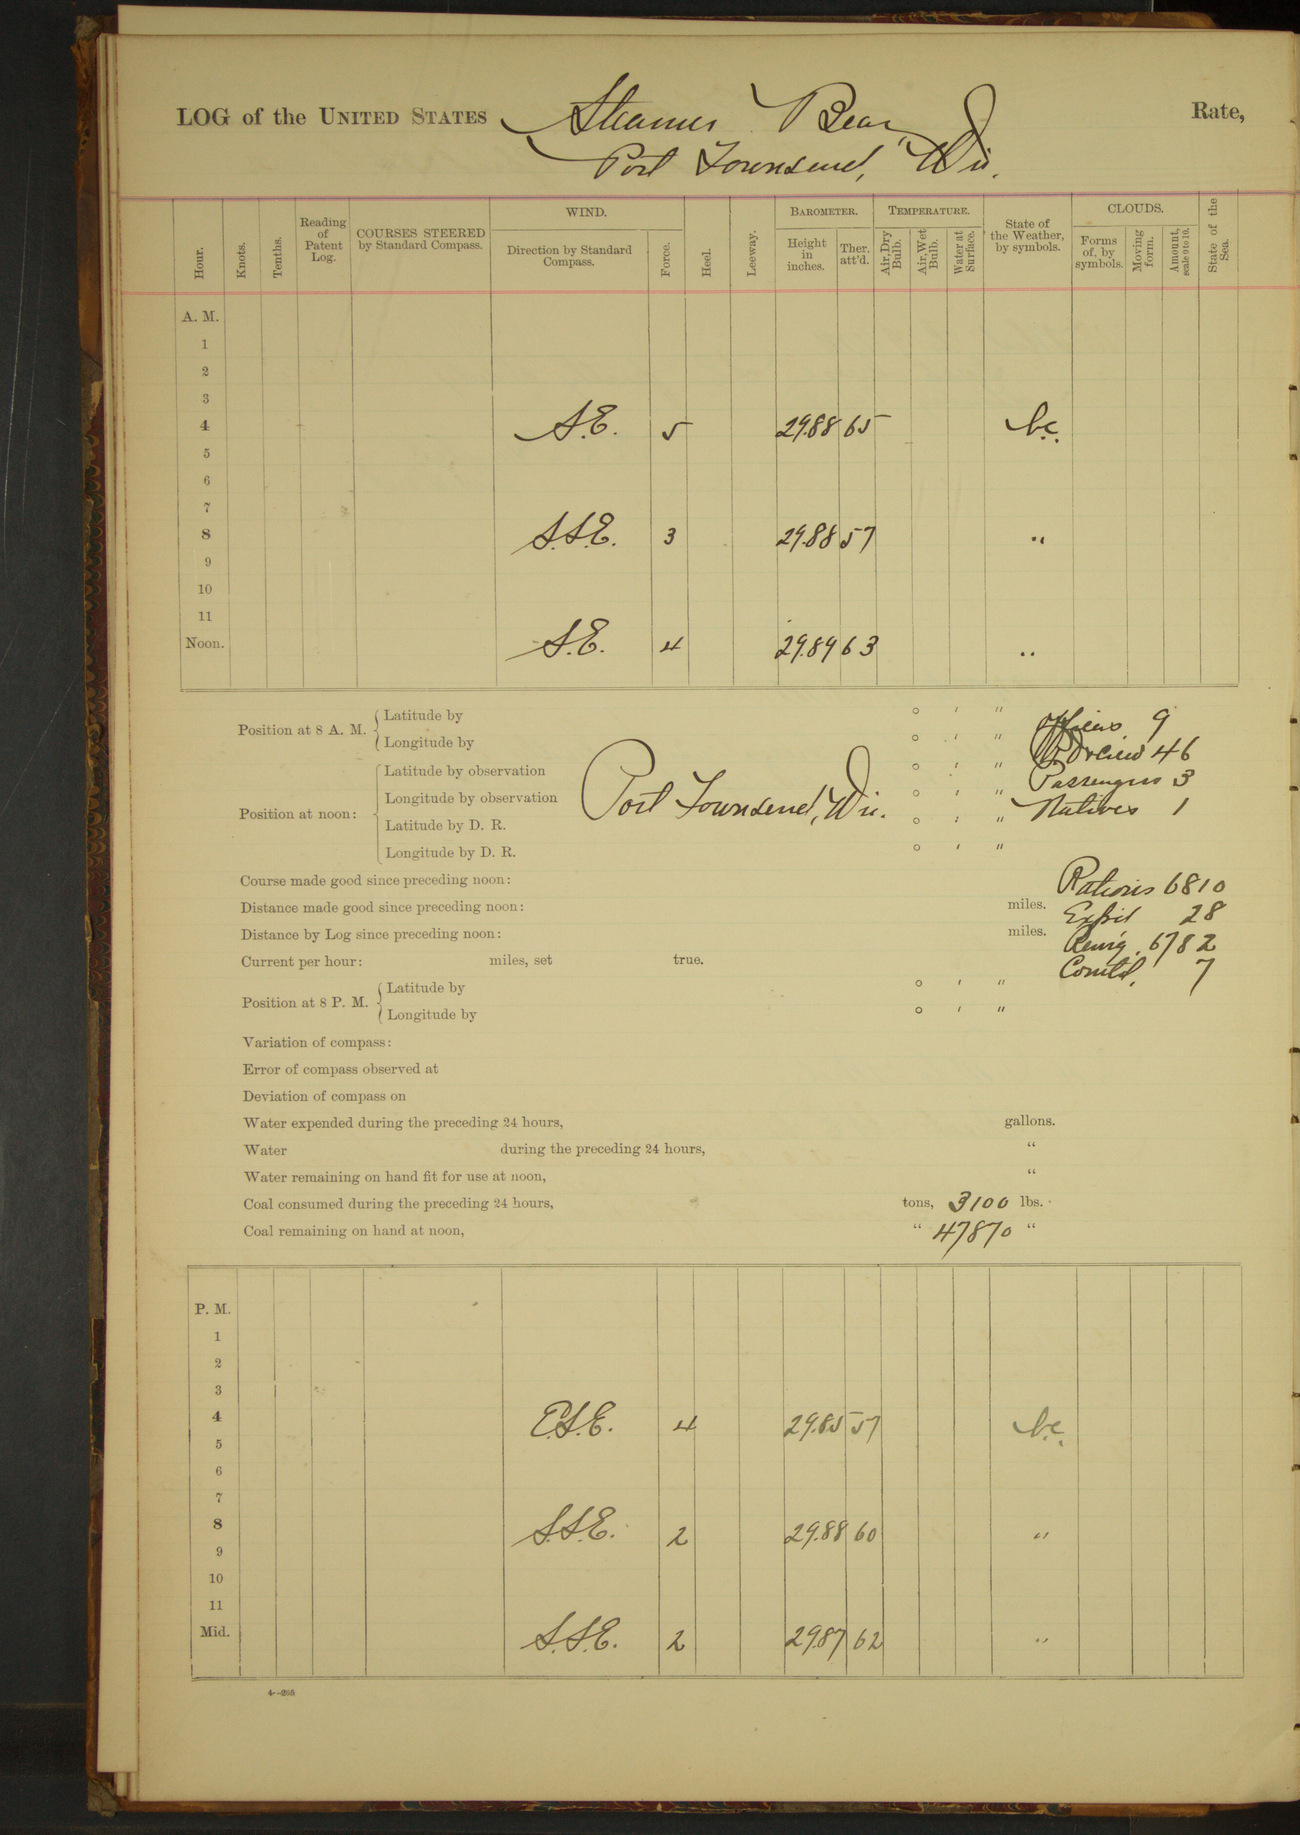 LOG of the UNITED STATES Steamer Bear, Rate,
Port Townsend, Wn.
Hour. Knots. Tenths. Reading of Patent Log. COURSES STEERED by Standard Compass. WIND. Direction by Standard Compass. Force. Heel. Leeway. BAROMETER. Height in inches. Ther. att'd. TEMPERATURE. Air, Dry Bulb. Air, Wet Bulb. Water at Surface. State of the Weather, by symbols. CLOUDS. Forms of, by symbols. Moving form. Amount, scale 0 to 10. State of the Sea.
A. M.
1
2
3
4 S.E. 5 29.88 65 b.c.
5
6
7
8 S.S.E. 3 29.88 57 "
9
10
11
Noon. S.E. 4 29.89 63 "
Position at 8 A. M. Latitude by ° ' "
Longitude by ° ' "
Officers 9
crew 46
Passengers 3
Natives 1
Position at noon: Latitude by observation ° ' "
Longitude by observation ° ' "
Port Townsend, Wn.
Latitude by D. R. ° ' "
Longitude by D. R. ° ' "
Course made good since preceding noon: Rations 6810
Distance made good since preceding noon: miles. Exp'd 28
Distance by Log since preceding noon: miles. Rem'g. 6782
Current per hour: miles, set true. Com'td. 7
Position at 8 P. M. Latitude by ° ' "
Longitude by ° ' "
Variation of compass:
Error of compass observed at
Deviation of compass on
Water expended during the preceding 24 hours, gallons.
Water during the preceding 24 hours, "
Water remaining on hand fit for use at noon, "
Coal consumed during the preceding 24 hours, tons, 3100 lbs.
Coal remaining on hand at noon, " 47870 "
P. M.
1
2
3
4 E.S.E. 4 29.85 57 b.c.
5
6
7
8 S.S.E. 2 29.88 60 "
9
10
11
Mid. S.S.E. 2 29.87 62 "
4--265